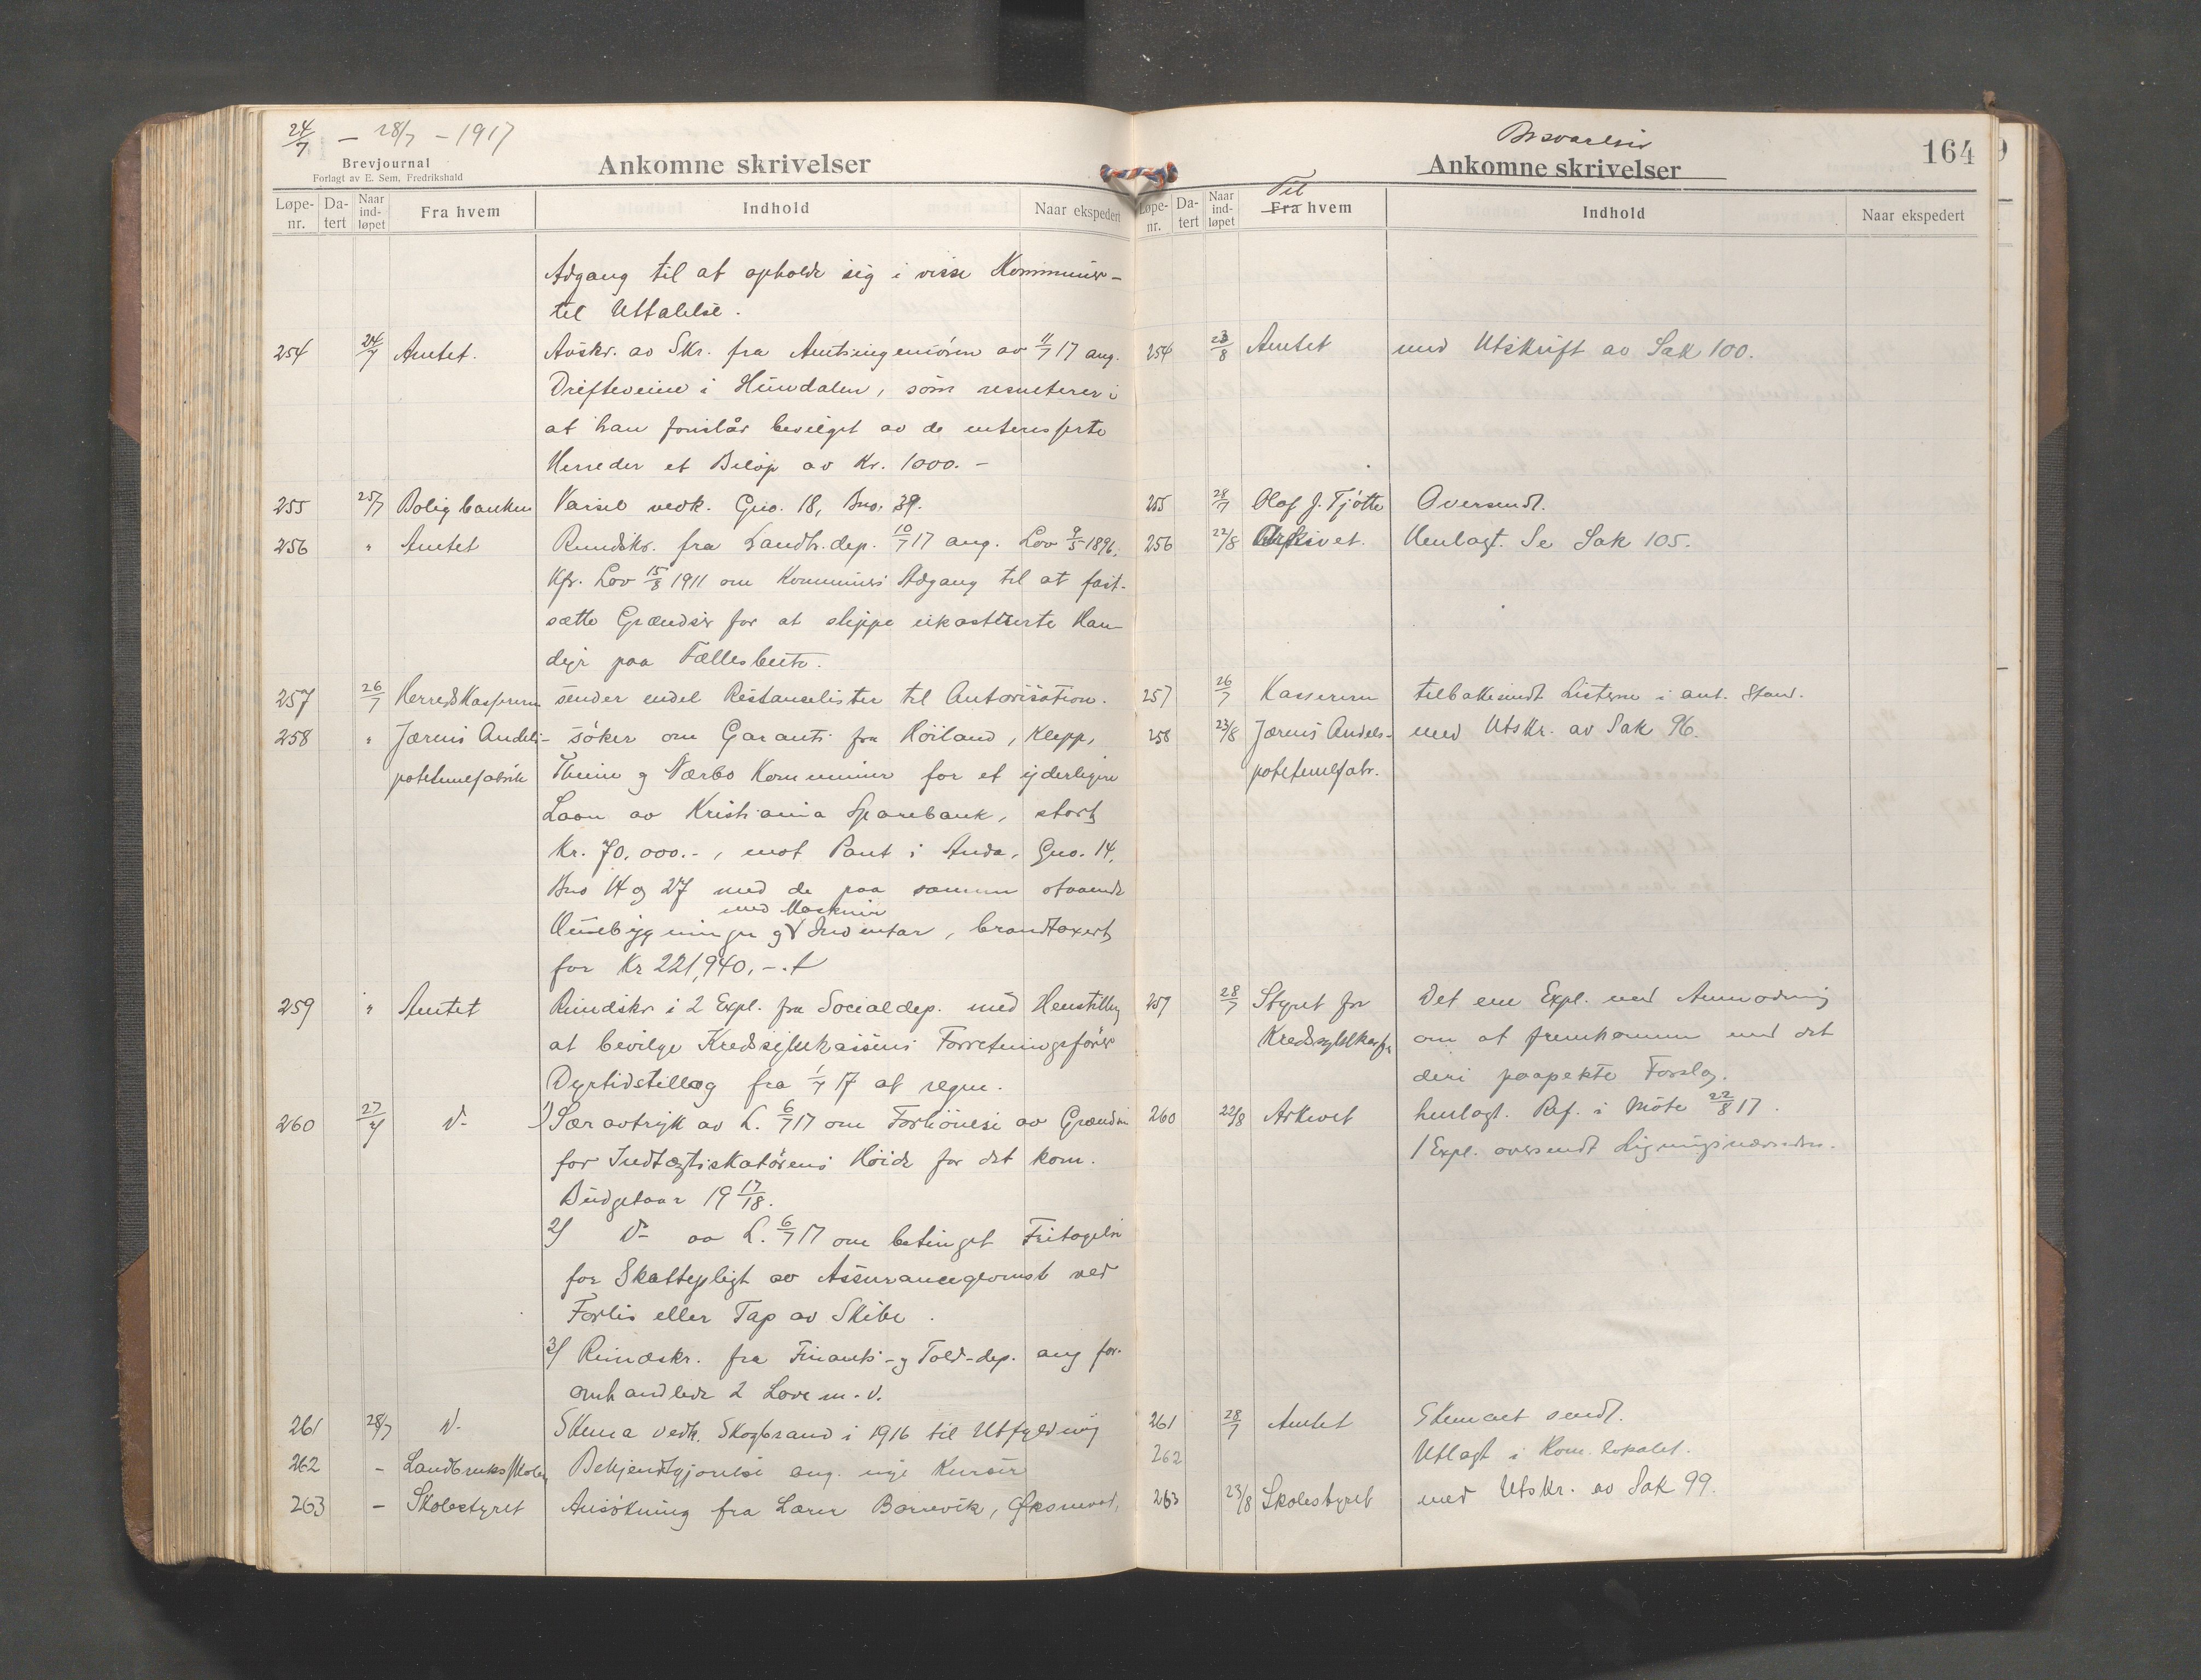 24/7 – 28/7 – 1917
Brevjournal
Forlagt av E. Sem, Fredrikshald
Ankomne skrivelser
Løpe-nr. Da-tert Naar ind-løpet Fra hvem Indhold Naar ekspedert
Adgang til at opholde sig i visse Kommuner –
til Uttalelse.
254 24/7 Amtet. Avskr. av Skr. fra Amtsingeniören av 11/7 17 ang.
Drifteveiene i Hunndalen, som resulterer i
at han foreslår bevilget av de interesserte
Herreder et Beløp av Kr. 1000.–
255 25/7 Boligbanken Varsel vedk. Gno. 18, Bno. 39.
256 " Amtet Rundskr. fra Landb.dep. 10/7 17 ang. Lov 9/5 1896,
Kfr. Lov 15/8 1911 om Kommuners Adgang til at fast-
sætte Grændser for at slippe ukastrerte Han-
dyr paa Fællesbeite.
257 26/7 Herredskasseren sender endel Restanselister til Autorisation.
258 " Jærens Andels- söker om Garanti fra Höiland, Klepp,
potetmelfabrik Thime og Nærbø Kommuner for et yderligere
Laan av Kristiania Sparebank, stort
Kr. 70.000.-, mot Pant i Anda, Gno. 14,
Bno 14 og 27 med de paa samme staaende
med Maskiner
Husebygninger og Inventar, brandtaxert
for Kr 221,940,–.
259 " Amtet Rundskr i 2 Expl. fra Socialdep. med Henstilling
at bevilge Kredssykekassens Forretningsförer
Dyrtidstillæg fra 1/7 17 at regne.
260 27/7 D- 1) Særavtryk av L. 6/7 17 om Forhöielse av Grændsen
for Indtægtsskatörens Höide for det kom.
Budgetaar 19 17/18.
2) D- av L. 6/7 17 om betinget Fritagelse
for Skattepligt av Assurancegevinst ved
Forlis eller Tap av Skibe.
3) Rundskr. fra Finants- og Told-dep. ang for-
omhandlede 2 Love m.v.
261 28/7 D- Skema vedk. Skogbrand i 1916 til Utfyldning
262 – Landbruksskolen Bekjendtgjörelse ang. nye Kurser
263 – Skolestyret Ansökning fra Lærer Borrevik,
Besvarelser
Ankomne skrivelser
164
Løpe-nr. Da-tert Naar ind-løpet Til Fra hvem Indhold Naar ekspedert
254 23/8 Amtet med Utskrift av Sak 100.
255 28/7 Olaf J. Tjötte Oversendt.
256 22/8 Arkivet. Henlagt. Se Sak 105.
257 26/7 Kasseren tilbakesendt Listerne i aut. Stand.
258 23/8 Jærens Andels- med Utskr. av Sak 96.
potetmelfabr.
259 28/7 Styret for Det ene Expl. med Anmodning
Kredssykekassen om at fremkomme med det
deri paapekte Forslag.
260 22/8 Arkivet henlagt. Ref. i Möte 22/8 17.
1 Expl. oversendt Ligningsnævnden.
261 28/7 Amtet Skemaet sendt.
262 Utlagt i Kom. lokalet.
263 23/8 Skolestyret med Utskr. av Sak 99.